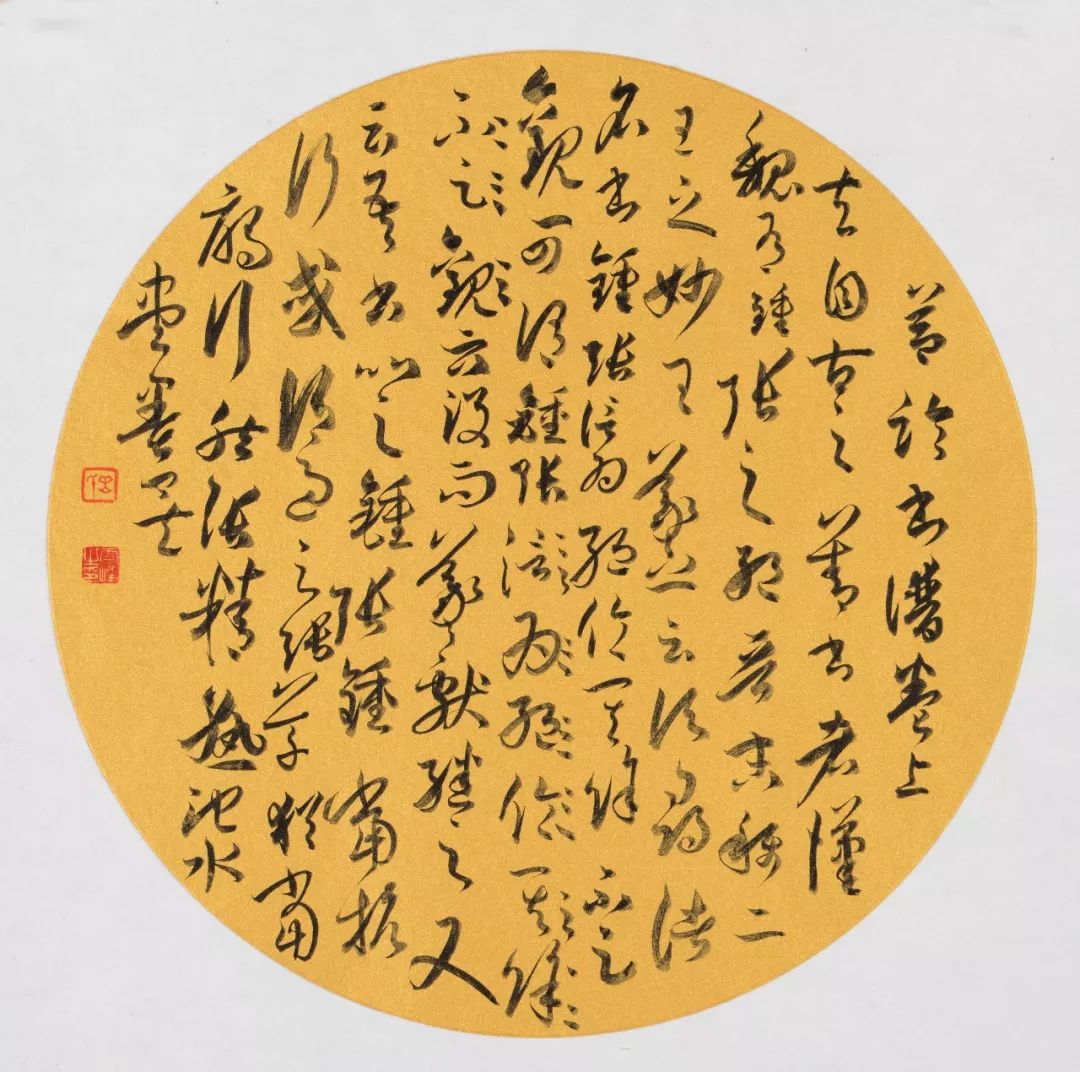 節臨書譜卷上
夫自古之善書者漢
魏有鍾張之絕晉末稱二
王之妙王羲之云頃尋諸
名書鍾張信為絕倫其餘不足
觀可謂鍾張信為絕倫其餘
不足觀云没而羲獻繼之又
云吾書比之鍾張鍾當抗
行或謂過之張草猶當
鴈行然張精熟池水
盡墨